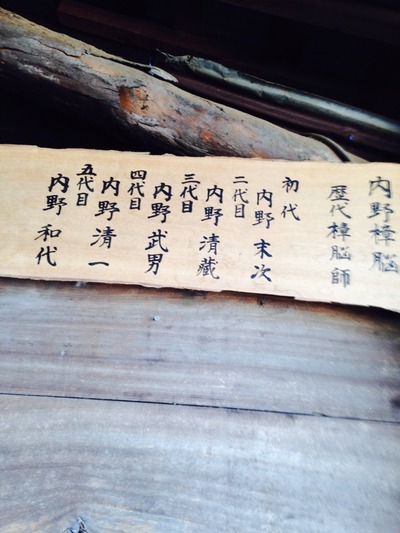 内野樟脳
歴代樟脳師
初代
内野末次
二代目
内野清藏
三代目
内野武男
四代目
内野清一
五代目
内野和代